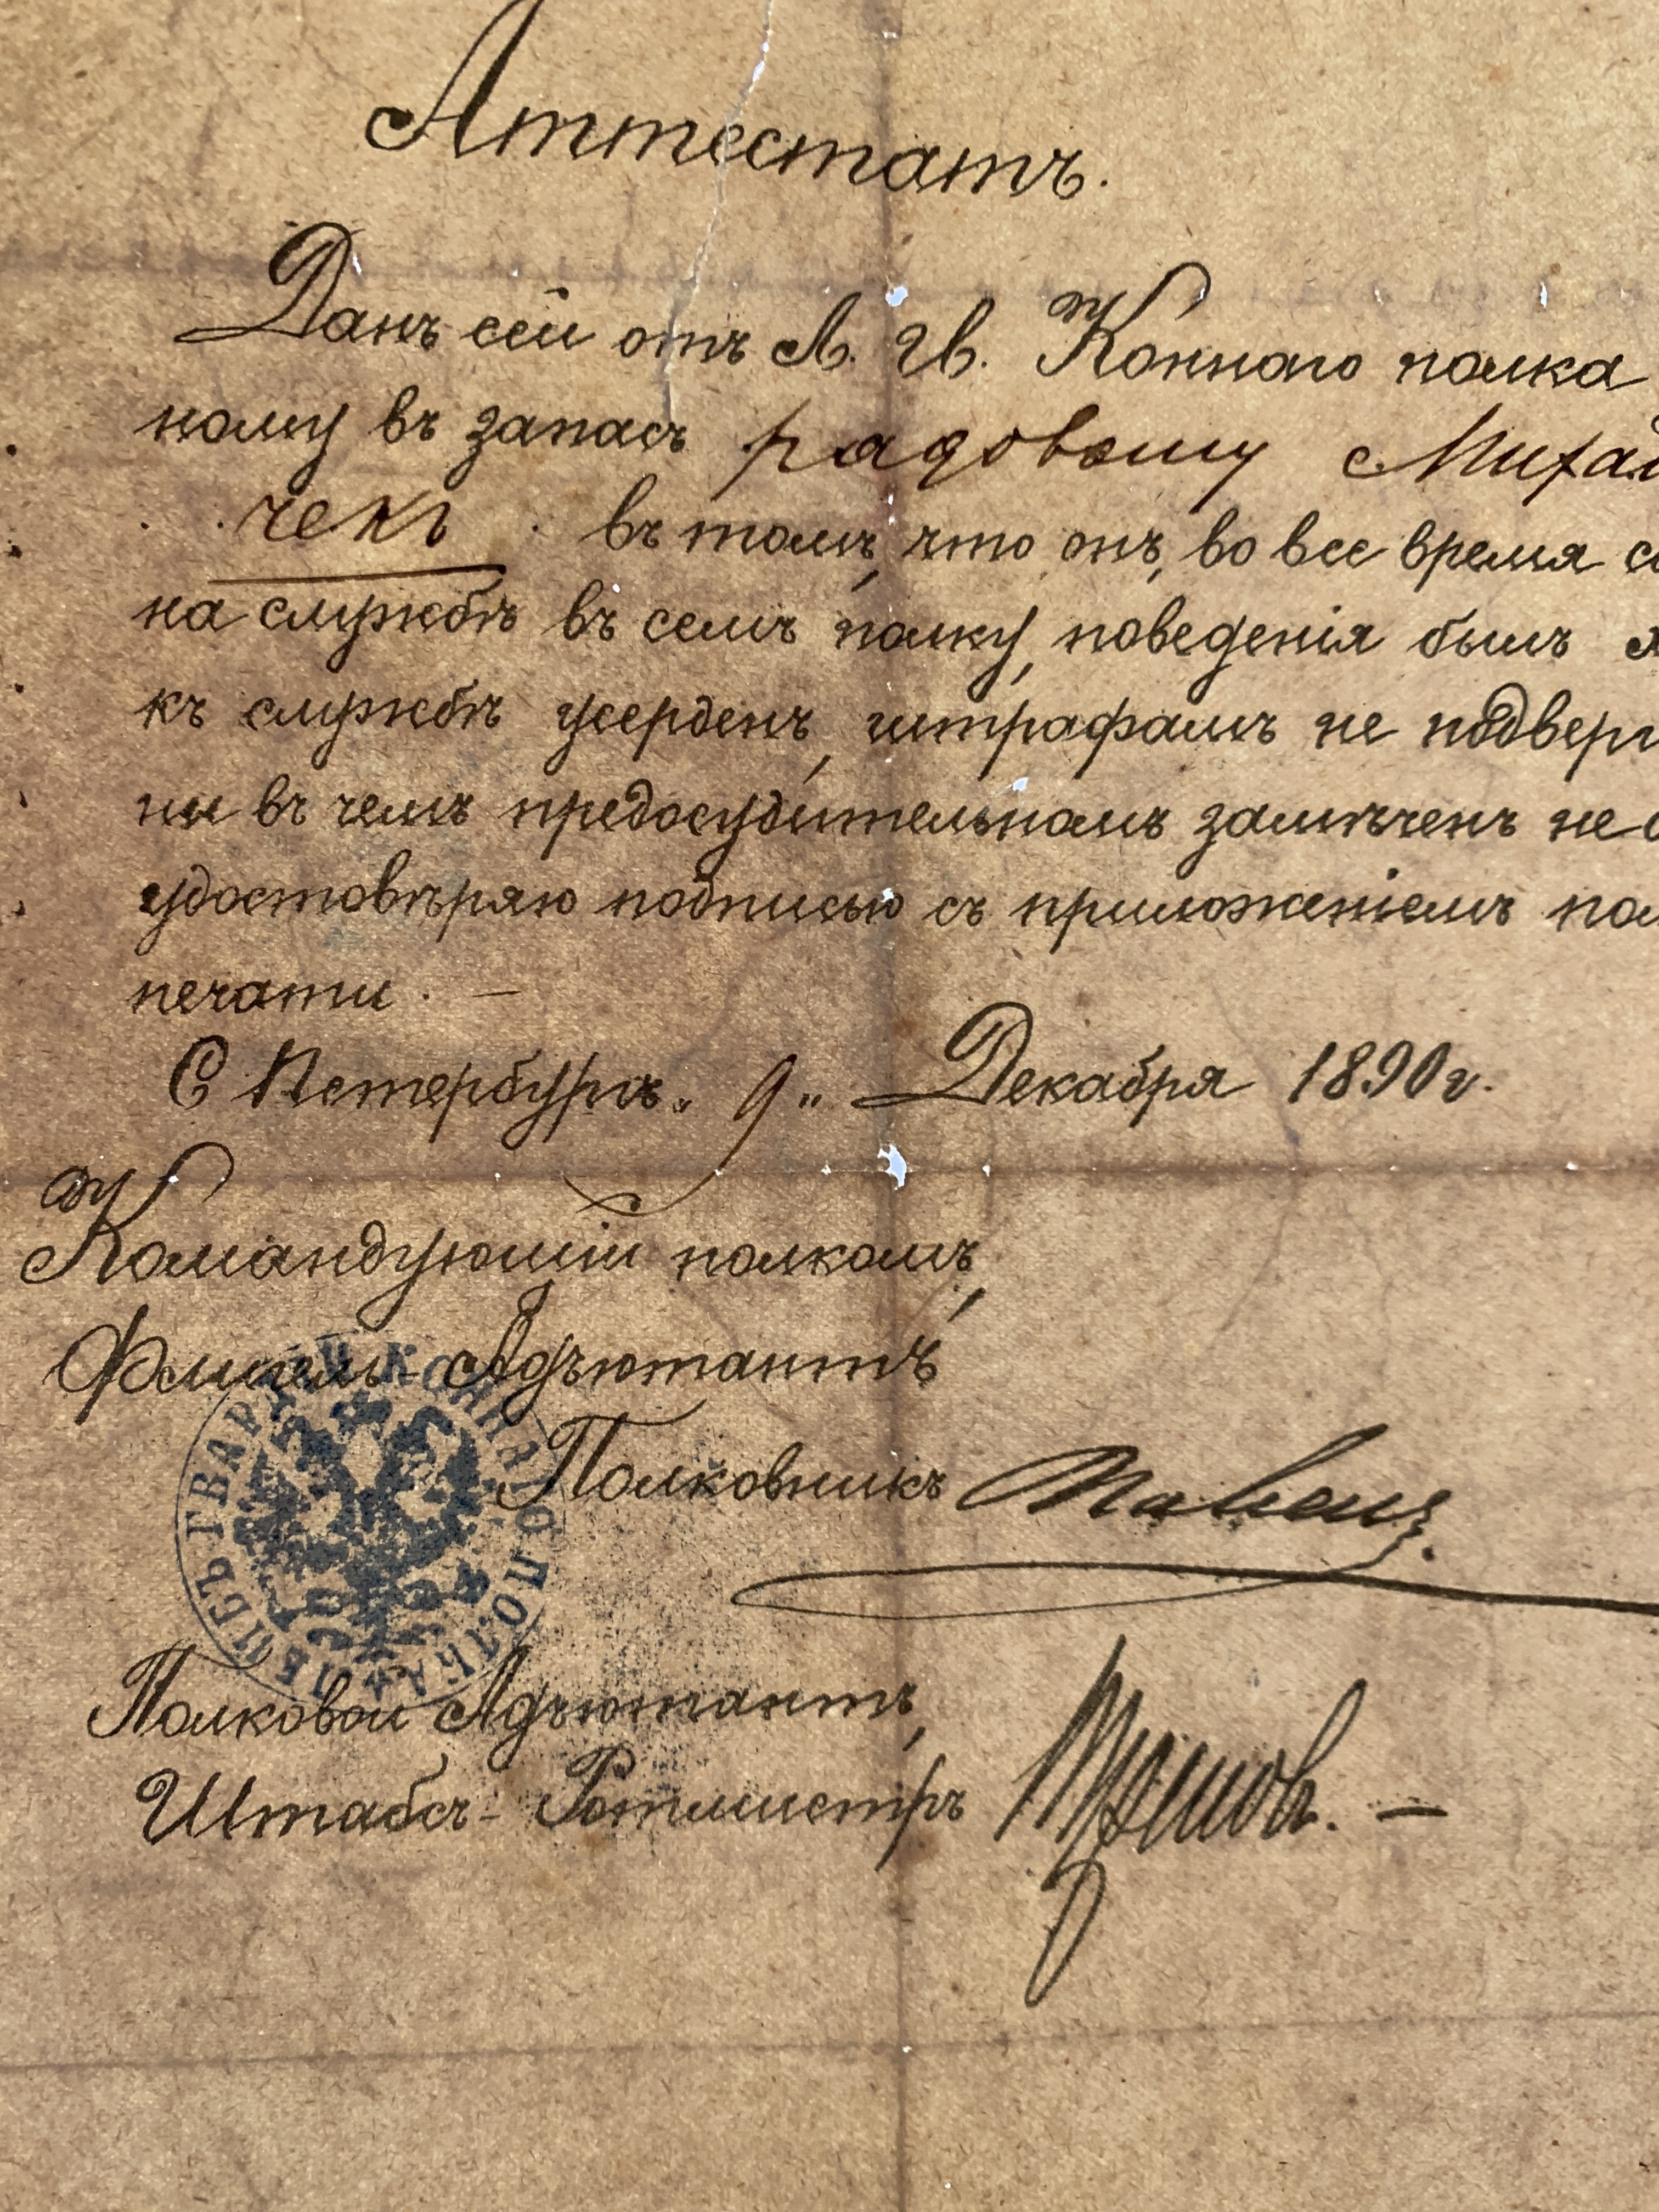 Аттестатъ.
Данъ сей отъ Л. Гв. Коннаго полка
ному въ запасъ рядовому Михаи
чекъ въ томъ, что онъ, во все время со
на службѣ въ семъ полку, поведенія былъ
къ службѣ усерденъ, штрафамъ не подверг
ни въ чемъ предосудительномъ замѣченъ не
удостовѣряю подписью съ приложеніемъ пол
печати. —
С Петербургъ „ 9 „ Декабря 1890 г.
Командующій полкомъ,
Флигель-Адъютантъ
Полковникъ
ЛЕЙБЪ ГВАРДІИ КОННАГО ПОЛКА
Полковой Адъютантъ,
Штабсъ-Ротмистръ